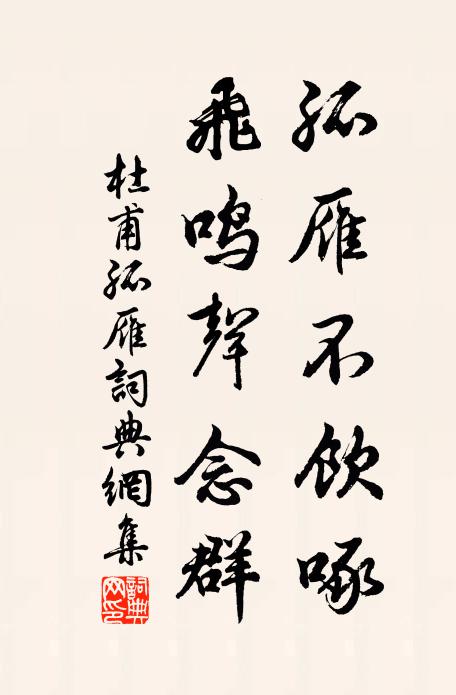 孤雁不飲啄
飛鳴聲念群
杜甫孤雁詞典網集
詞典網印